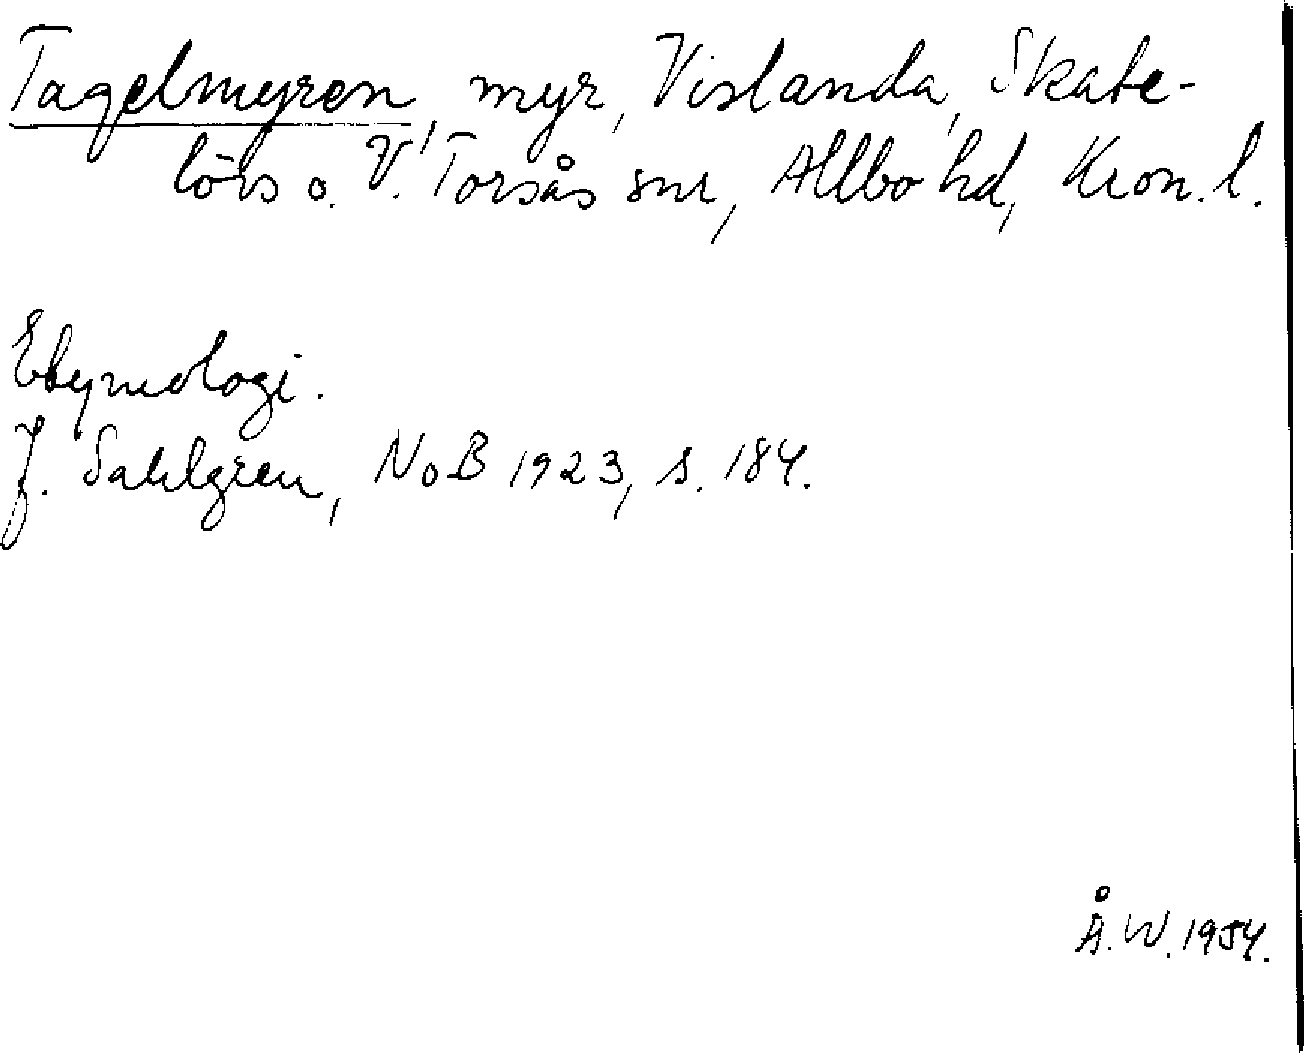 Tagelmyren, myr, Vislanda, Skate-
lövs o. V. Torsås snr, Allbo hd, Kron. l.
Etymologi.
J. Sahlgren, NoB 1923, s. 184.
Å. W. 1954.